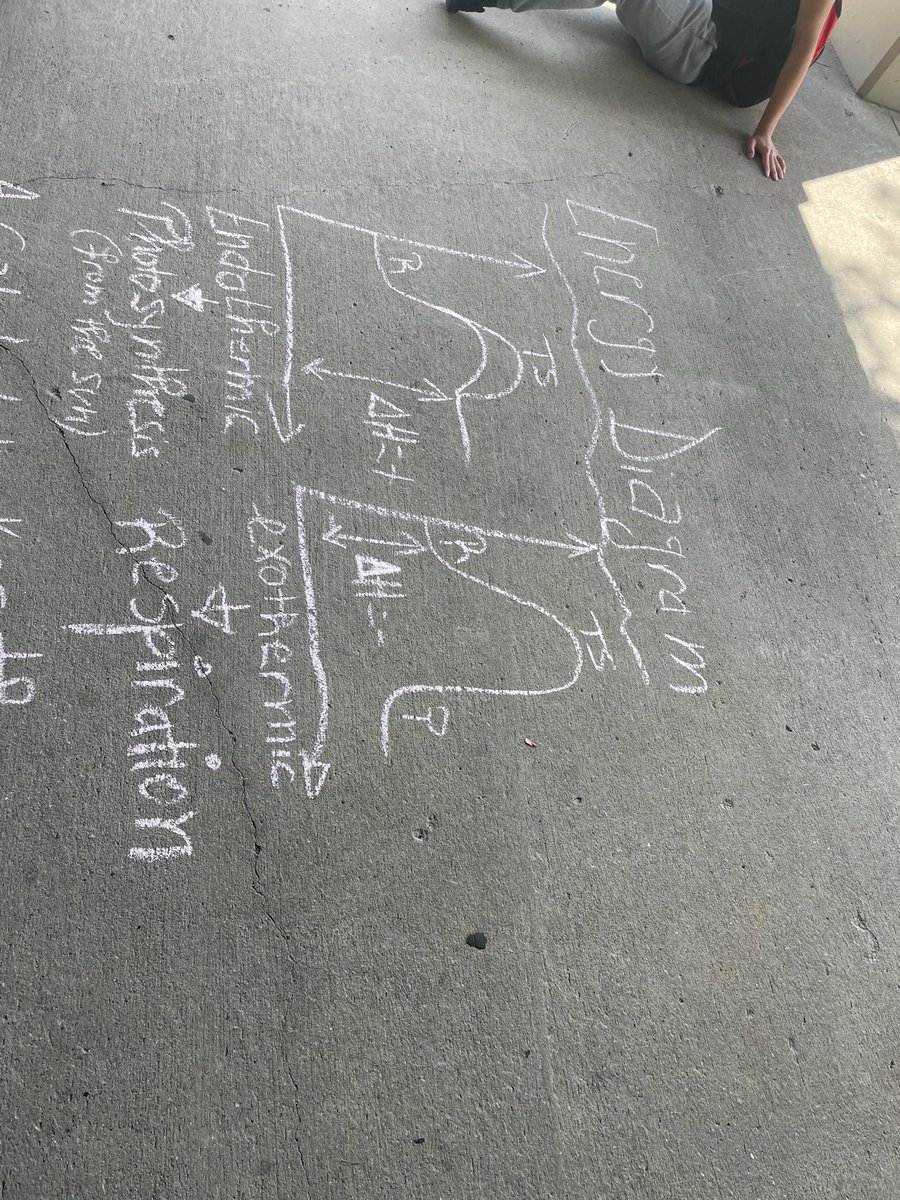 Energy Diagram
TS
R
ΔH=+
Endothermic
Photosynthesis
(from the sun)
TS
R
P
ΔH=-
exothermic
Respiration